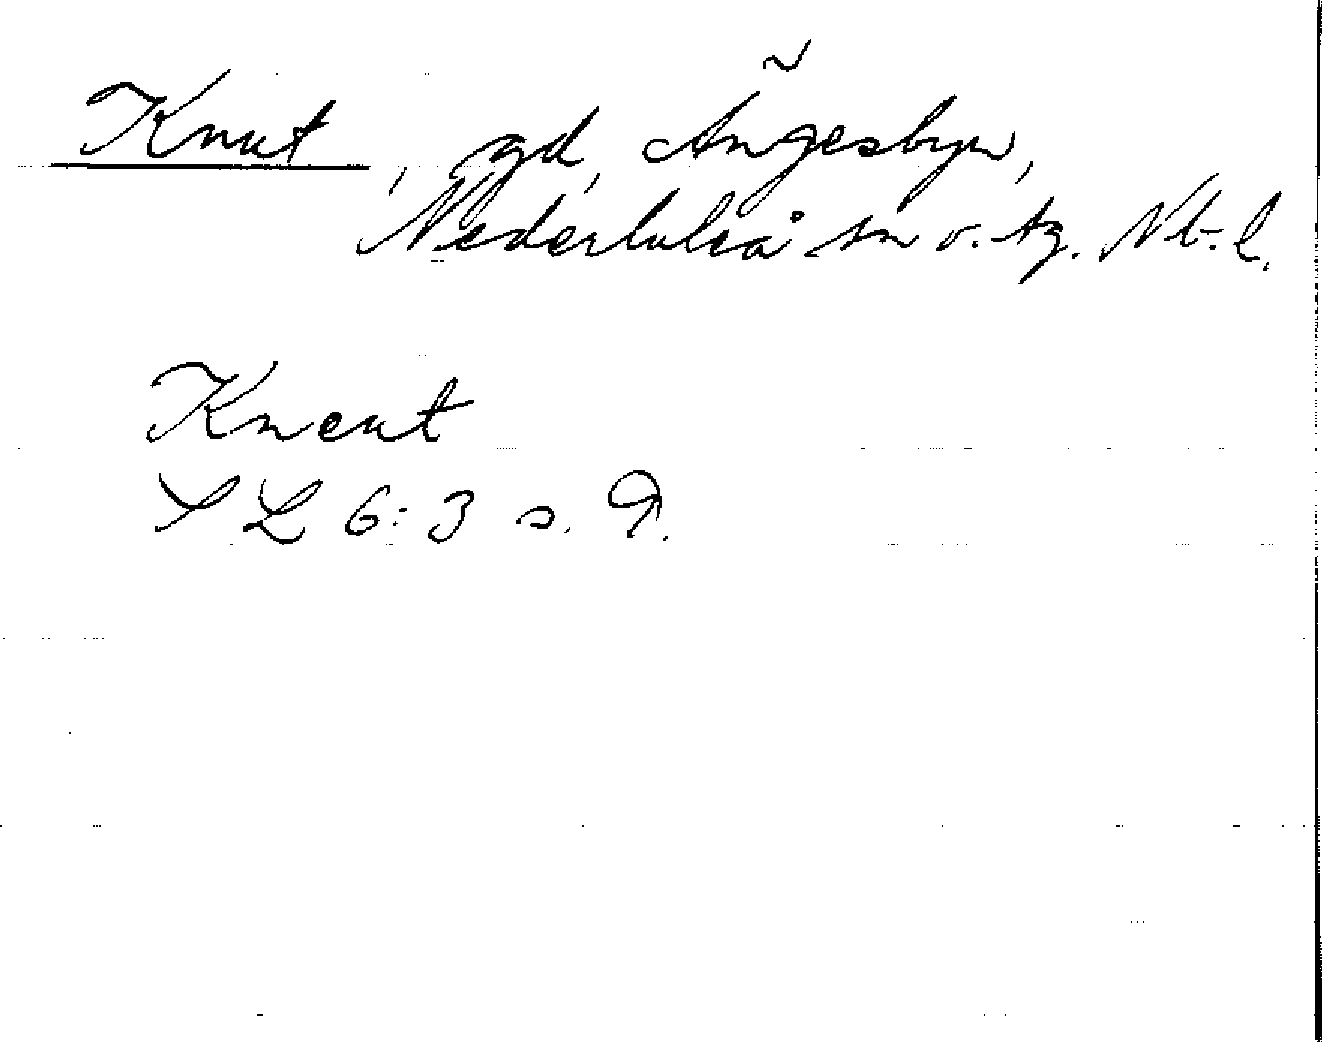 Knut, gd, Ängesbyn,
Nederluleå sn o. tg. Nb. l.
Kneut
SL 6:3 s. 9.